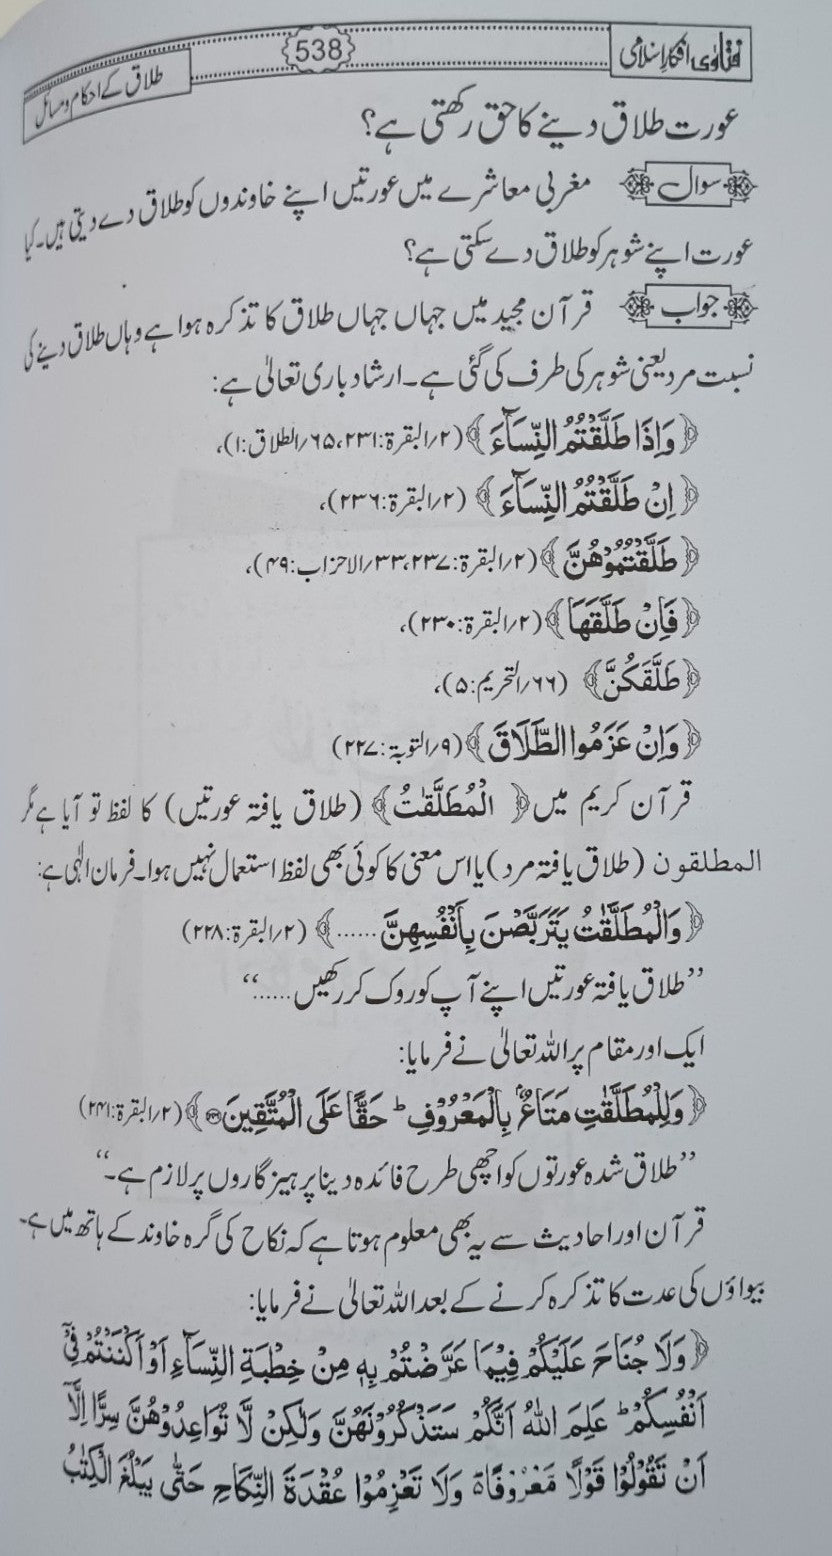 فتاویٰ افکارِ اسلامی 538 طلاق کے احکام و مسائل
عورت طلاق دینے کا حق رکھتی ہے؟
سوال مغربی معاشرے میں عورتیں اپنے خاوندوں کو طلاق دے دیتی ہیں۔ کیا
عورت اپنے شوہر کو طلاق دے سکتی ہے؟
جواب قرآن مجید میں جہاں جہاں طلاق کا تذکرہ ہوا ہے وہاں طلاق دینے کی
نسبت مرد یعنی شوہر کی طرف کی گئی ہے۔ ارشاد باری تعالیٰ ہے:
﴿وَاِذَا طَلَّقْتُمُ النِّسَآءَ﴾ (۲/البقرۃ:۲۳۱، ۶۵/الطلاق:۱)،
﴿اِنْ طَلَّقْتُمُ النِّسَآءَ﴾ (۲/البقرۃ:۲۳۶)،
﴿طَلَّقْتُمُوْهُنَّ﴾ (۲/البقرۃ:۲۳۷، ۳۳/الاحزاب:۴۹)،
﴿فَاِنْ طَلَّقَهَا﴾ (۲/البقرۃ:۲۳۰)،
﴿طَلَّقَكُنَّ﴾ (۶۶/التحریم:۵)،
﴿وَاِنْ عَزَمُوا الطَّلَاقَ﴾ (۹/التوبۃ:۲۲۷)
قرآن کریم میں ﴿الْمُطَلَّقٰتُ﴾ (طلاق یافتہ عورتیں) کا لفظ تو آیا ہے مگر
المطلقون (طلاق یافتہ مرد) یا اس معنی کا کوئی بھی لفظ استعمال نہیں ہوا۔ فرمان الٰہی ہے:
﴿وَالْمُطَلَّقٰتُ يَتَرَبَّصْنَ بِاَنْفُسِهِنَّ ......﴾ (۲/البقرۃ:۲۲۸)
’’طلاق یافتہ عورتیں اپنے آپ کو روک کر رکھیں......‘‘
ایک اور مقام پر اللہ تعالیٰ نے فرمایا:
﴿وَلِلْمُطَلَّقٰتِ مَتَاعٌۢ بِالْمَعْرُوْفِ ؕ حَقًّا عَلَى الْمُتَّقِيْنَ﴾ (۲/البقرۃ:۲۴۱)
’’طلاق شدہ عورتوں کو اچھی طرح فائدہ دینا پرہیز گاروں پر لازم ہے۔‘‘
قرآن اور احادیث سے یہ بھی معلوم ہوتا ہے کہ نکاح کی گرہ خاوند کے ہاتھ میں ہے۔
بیواؤں کی عدت کا تذکرہ کرنے کے بعد اللہ تعالیٰ نے فرمایا:
﴿وَلَا جُنَاحَ عَلَيْكُمْ فِيْمَا عَرَّضْتُمْ بِهٖ مِنْ خِطْبَةِ النِّسَآءِ اَوْ اَكْنَنْتُمْ فِيْۤ
اَنْفُسِكُمْ ؕ عَلِمَ اللّٰهُ اَنَّكُمْ سَتَذْكُرُوْنَهُنَّ وَلٰكِنْ لَّا تُوَاعِدُوْهُنَّ سِرًّا اِلَّاۤ
اَنْ تَقُوْلُوْا قَوْلًا مَّعْرُوْفًا ۚ وَلَا تَعْزِمُوْا عُقْدَةَ النِّكَاحِ حَتّٰى يَبْلُغَ الْكِتٰبُ